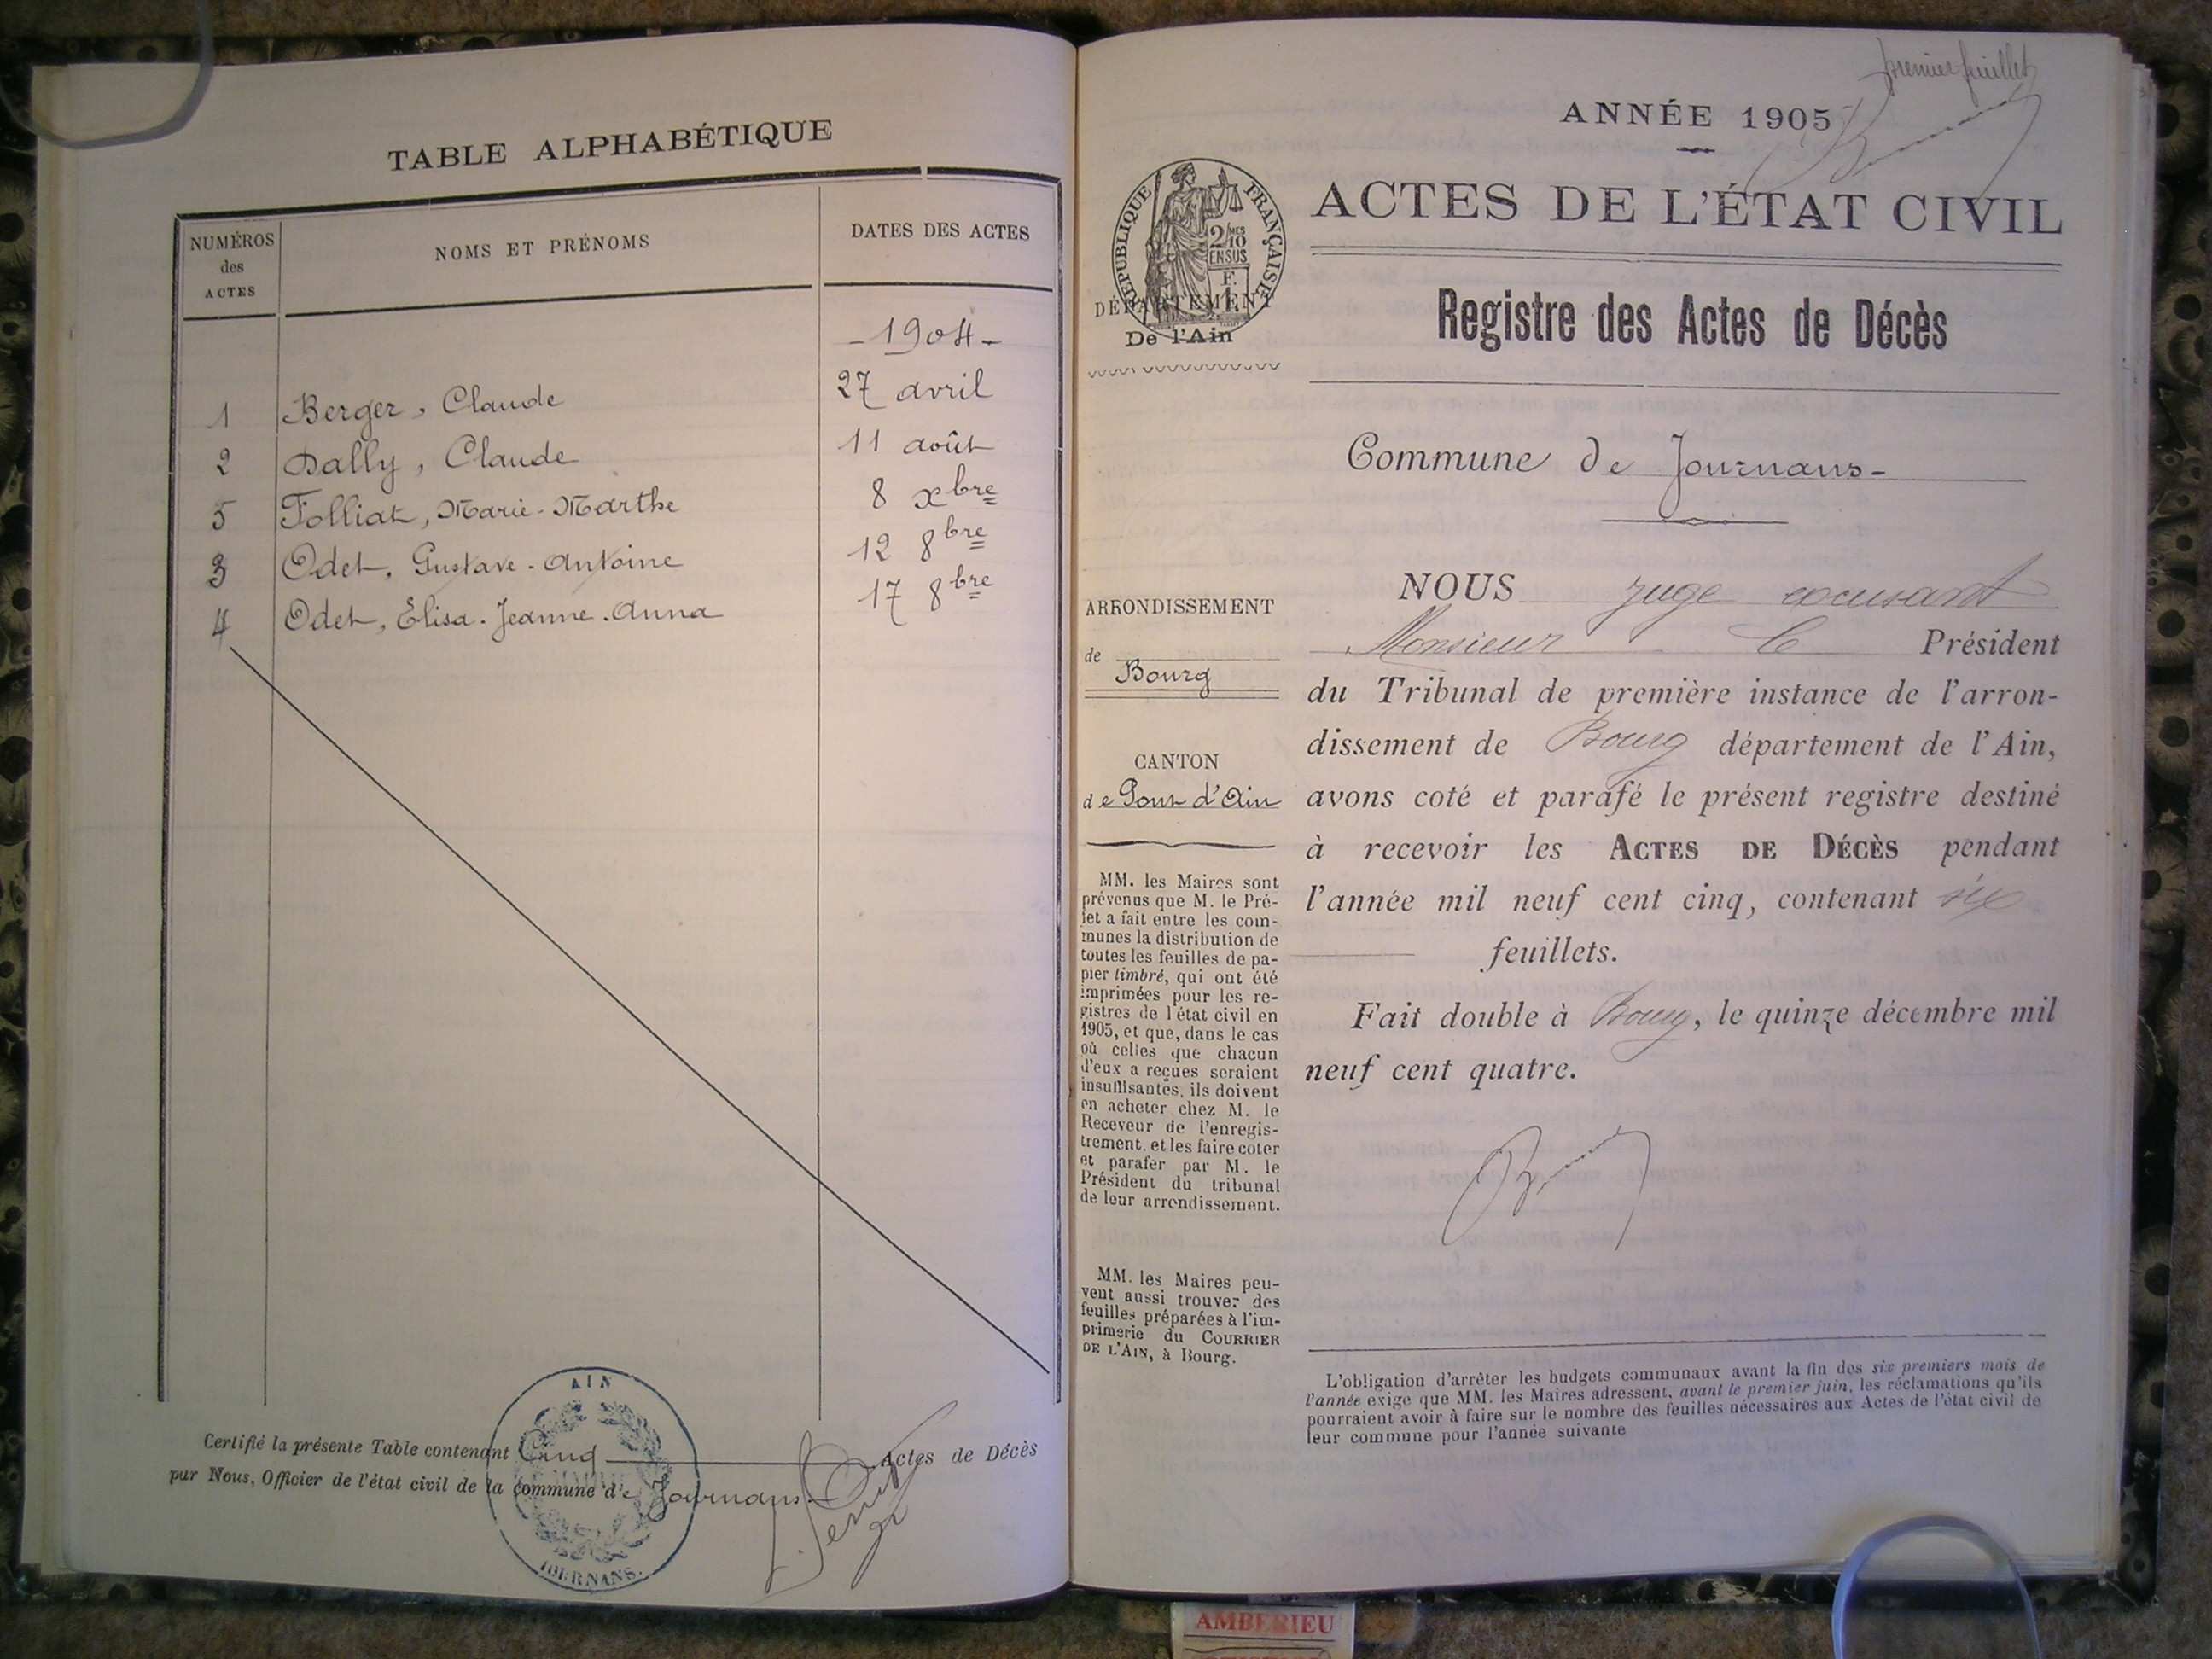 TABLE ALPHABÉTIQUE
NUMÉROS des ACTES
NOMS ET PRÉNOMS
DATES DES ACTES
- 1904 -
1 Berger, Claude 27 avril
2 Dally, Claude 11 août
5 Folliat, Marie-Marthe 8 xbre
3 Odet, Gustave-Antoine 12 8bre
4 Odet, Élisa-Jeanne-Anna 17 8bre
Certifié la présente Table contenant Cinq Actes de Décès
par Nous, Officier de l'état civil de la commune de Journans
AIN
JOURNANS.
premier feuillet
ANNÉE 1905
ACTES DE L'ÉTAT CIVIL
RÉPUBLIQUE FRANÇAISE
2/10 MES
EN SUS
F.
1
DÉPARTEMENT
De l'Ain
Registre des Actes de Décès
Commune de Journans-
ARRONDISSEMENT
de Bourg
CANTON
de Pont d'Ain
MM. les Maires sont
prévenus que M. le Pré-
fet a fait entre les com-
munes la distribution de
toutes les feuilles de pa-
pier timbré, qui ont été
imprimées pour les re-
gistres de l'état civil en
1905, et que, dans le cas
où celles que chacun
d'eux a reçues seraient
insuffisantes, ils doivent
en acheter chez M. le
Receveur de l'enregis-
trement, et les faire coter
et parafer par M. le
Président du tribunal
de leur arrondissement.
MM. les Maires peu-
vent aussi trouver des
feuilles préparées à l'im-
primerie du COURRIER
DE L'AIN, à Bourg.
NOUS juge excusant
Monsieur le Président
du Tribunal de première instance de l'arron-
dissement de Bourg département de l'Ain,
avons coté et parafé le présent registre destiné
à recevoir les ACTES DE DÉCÈS pendant
l'année mil neuf cent cinq, contenant six
feuillets.
Fait double à Bourg, le quinze décembre mil
neuf cent quatre.
L'obligation d'arrêter les budgets communaux avant la fin des six premiers mois de
l'année exige que MM. les Maires adressent, avant le premier juin, les réclamations qu'ils
pourraient avoir à faire sur le nombre des feuilles nécessaires aux Actes de l'état civil de
leur commune pour l'année suivante
AMBERIEU